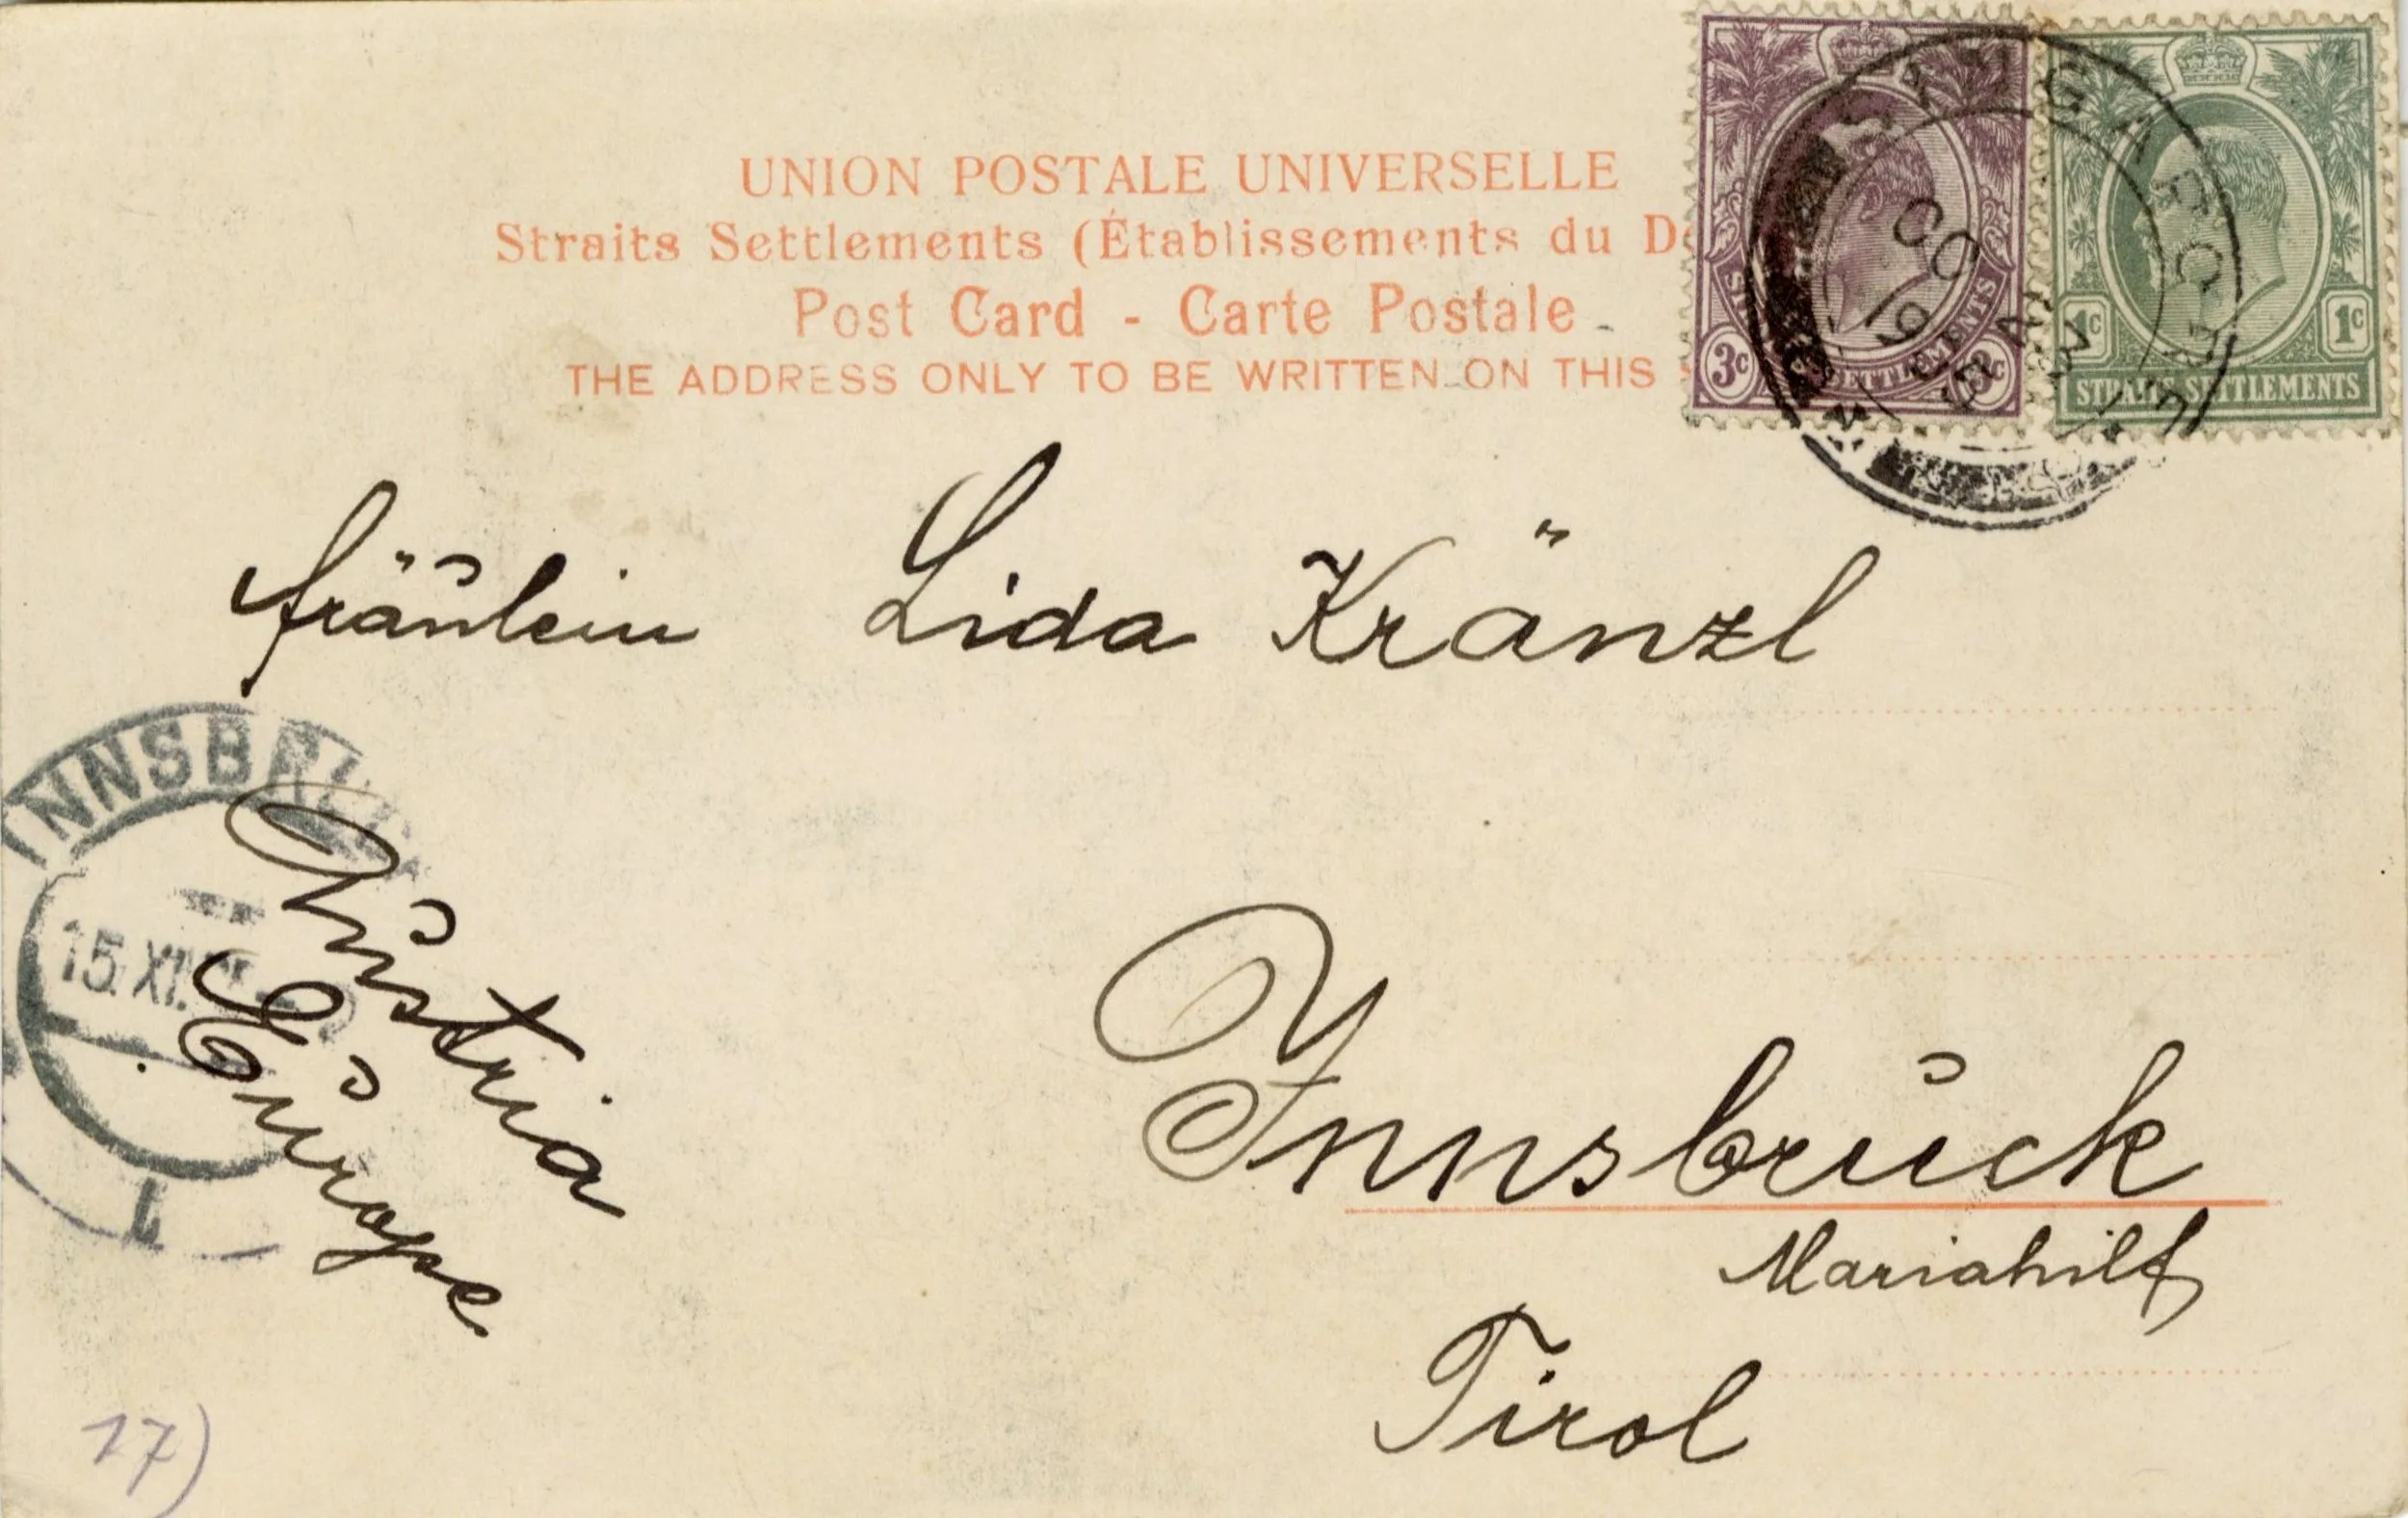 UNION POSTALE UNIVERSELLE
Straits Settlements (Établissements du D
Post Card - Carte Postale
THE ADDRESS ONLY TO BE WRITTEN ON THIS
3c 3c
SETTLEMENTS
1c 1c
STRAITS SETTLEMENTS
SINGAPORE
OC 19
Fräulein Lida Kränzl
INNSBRU
15.XI.
1
Austria
Europe
Innsbruck
Mariahilf
Tirol
17)